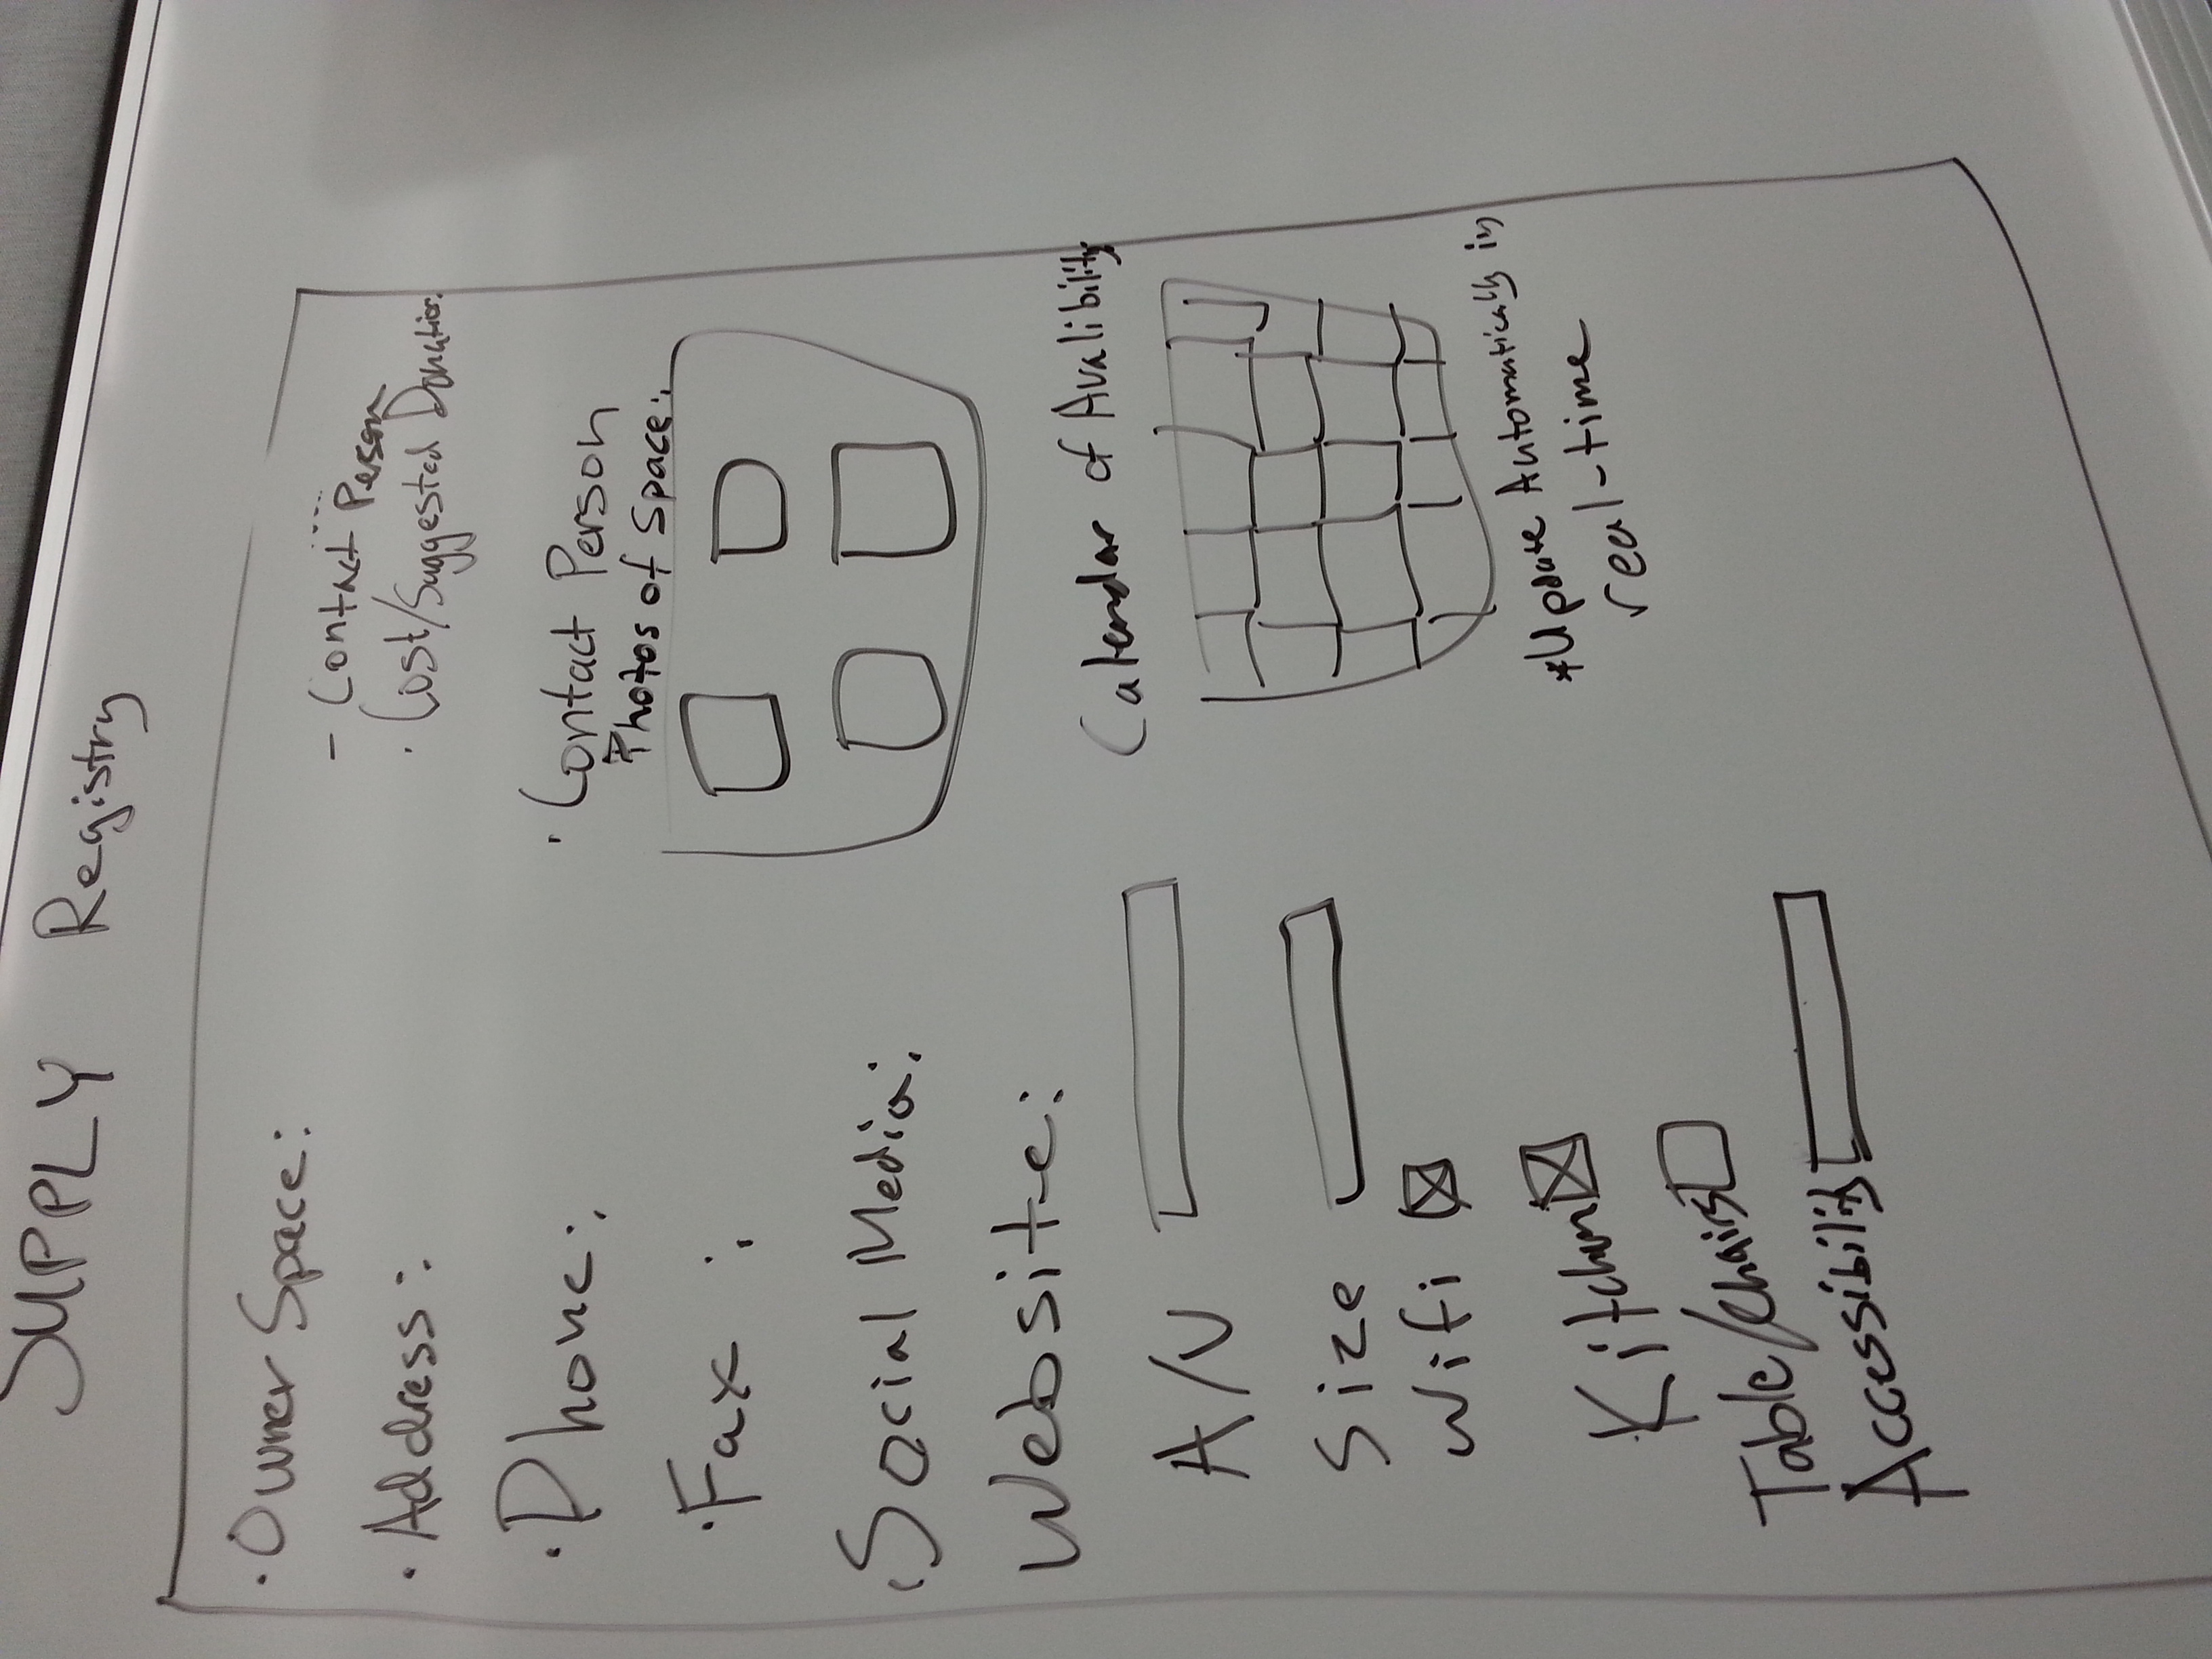 SUPPLY Registry
· Owner Space:
· Address:
· Phone:
· Fax :
· Social Media:
Website:
A/V
Size
Wifi
Kitchen
Table/Chairs
Accessibility
- Contact Person
· Cost/Suggested Donation
· Contact Person
Photos of Space:
Calendar of Avalibility
*Update Automatically in
real-time